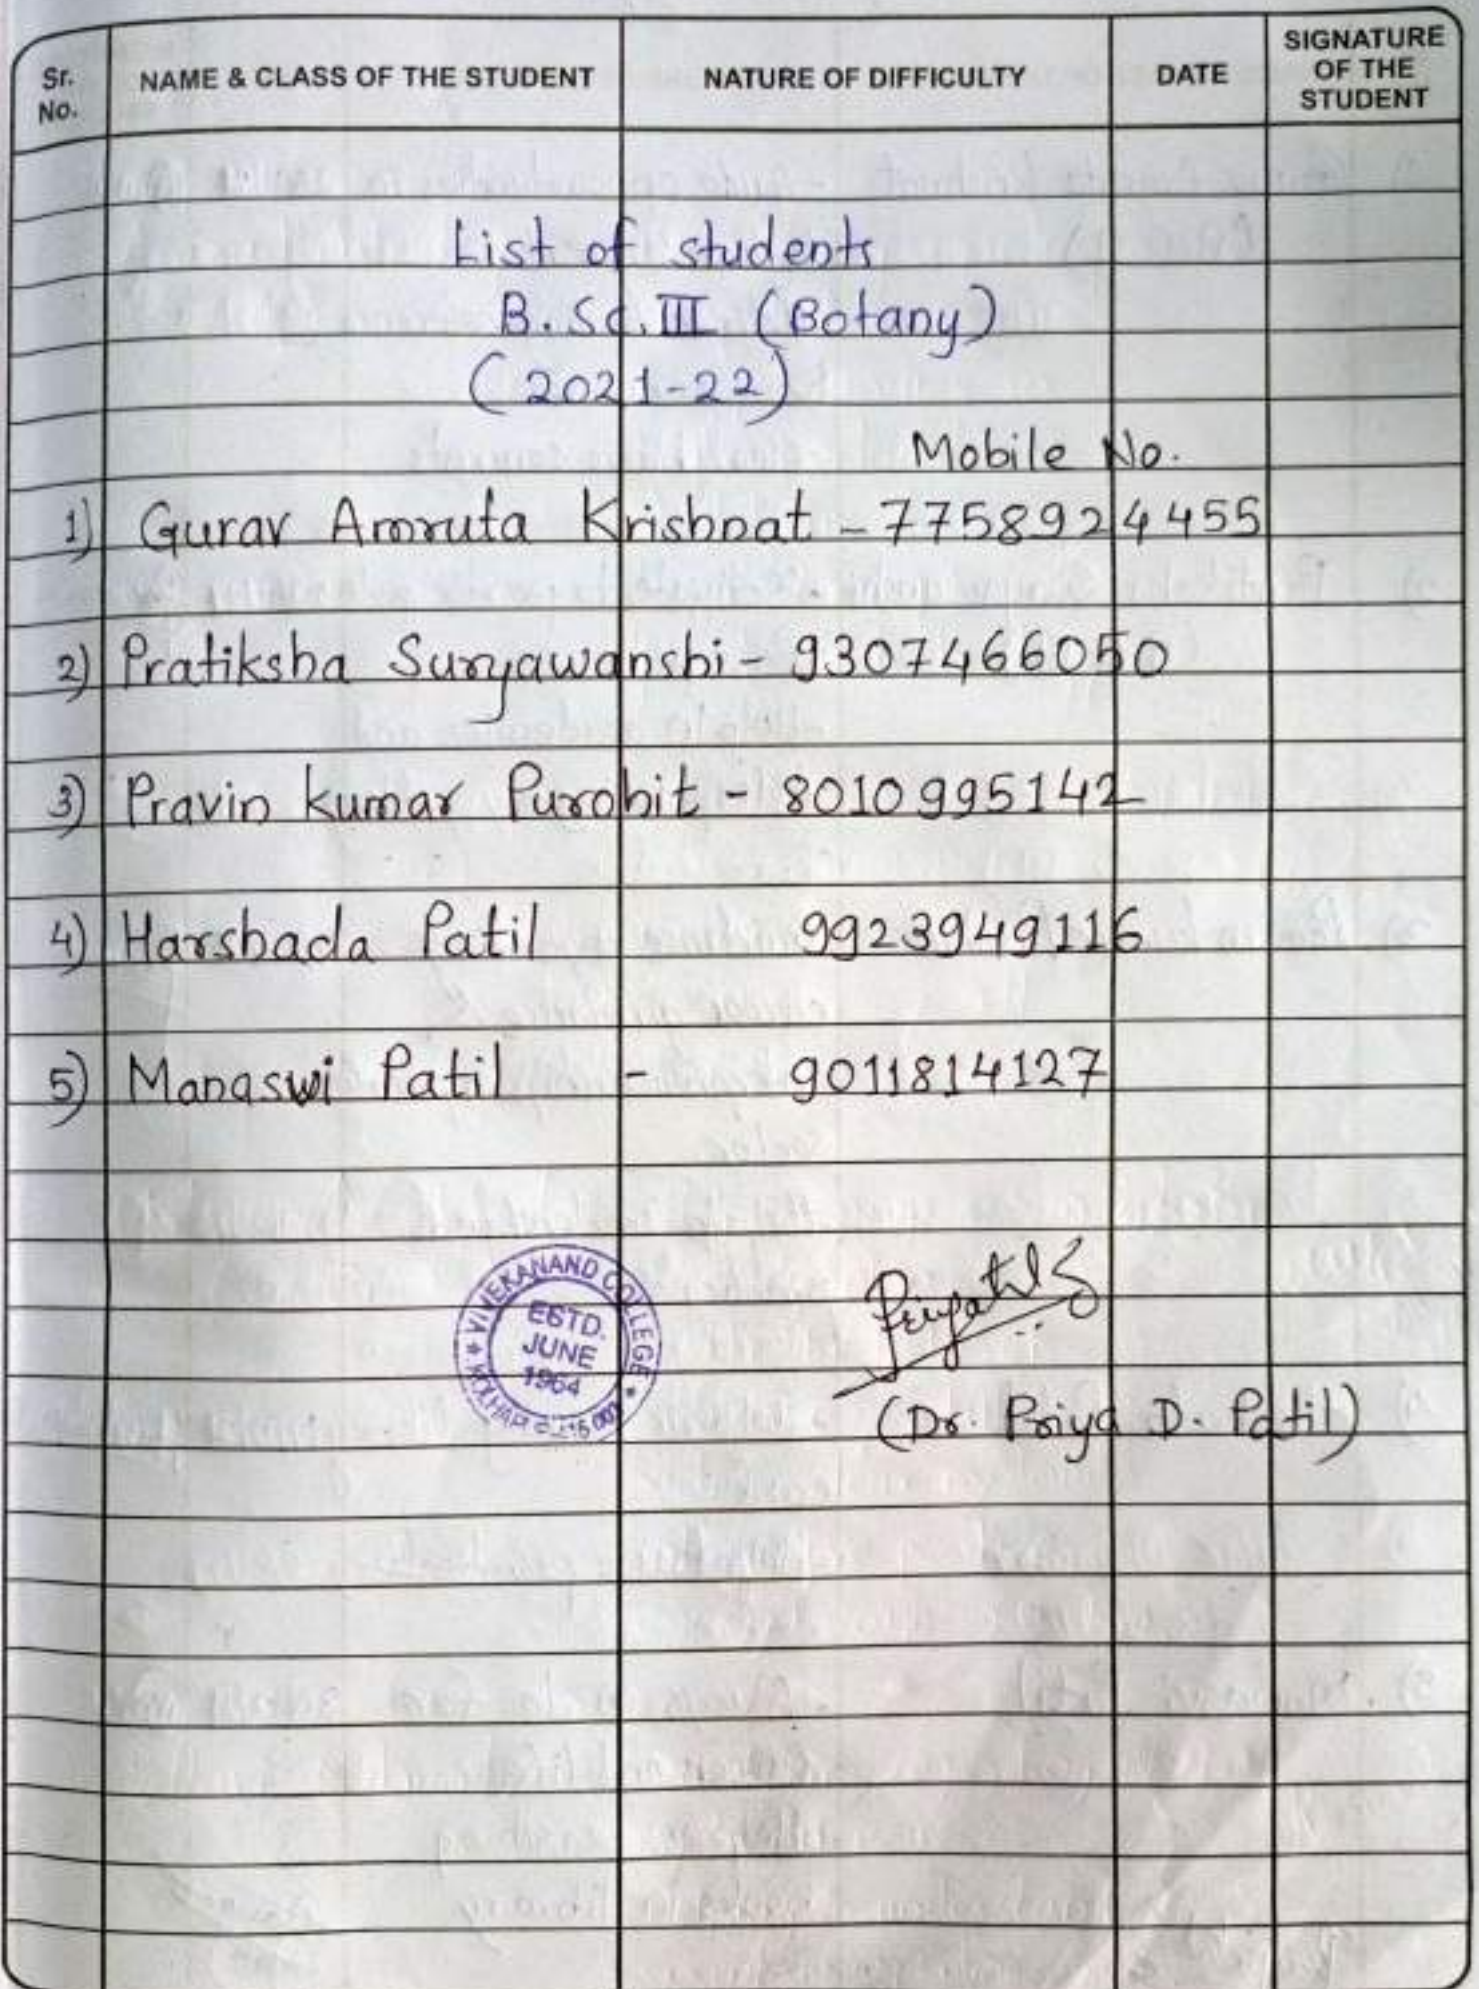 Sr. No.
NAME & CLASS OF THE STUDENT
NATURE OF DIFFICULTY
DATE
SIGNATURE OF THE STUDENT
List of students
B.Sc.III (Botany)
(2021-22)
Mobile No.
1) Gurav Amruta Krishnat - 7758924455
2) Pratiksha Suryawanshi - 9307466050
3) Pravin kumar Purohit - 8010995142
4) Harshada Patil 9923949116
5) Manaswi Patil - 9011814127
VIVEKANAND COLLEGE
ESTD.
JUNE
1964
(Dr. Priya D. Patil)